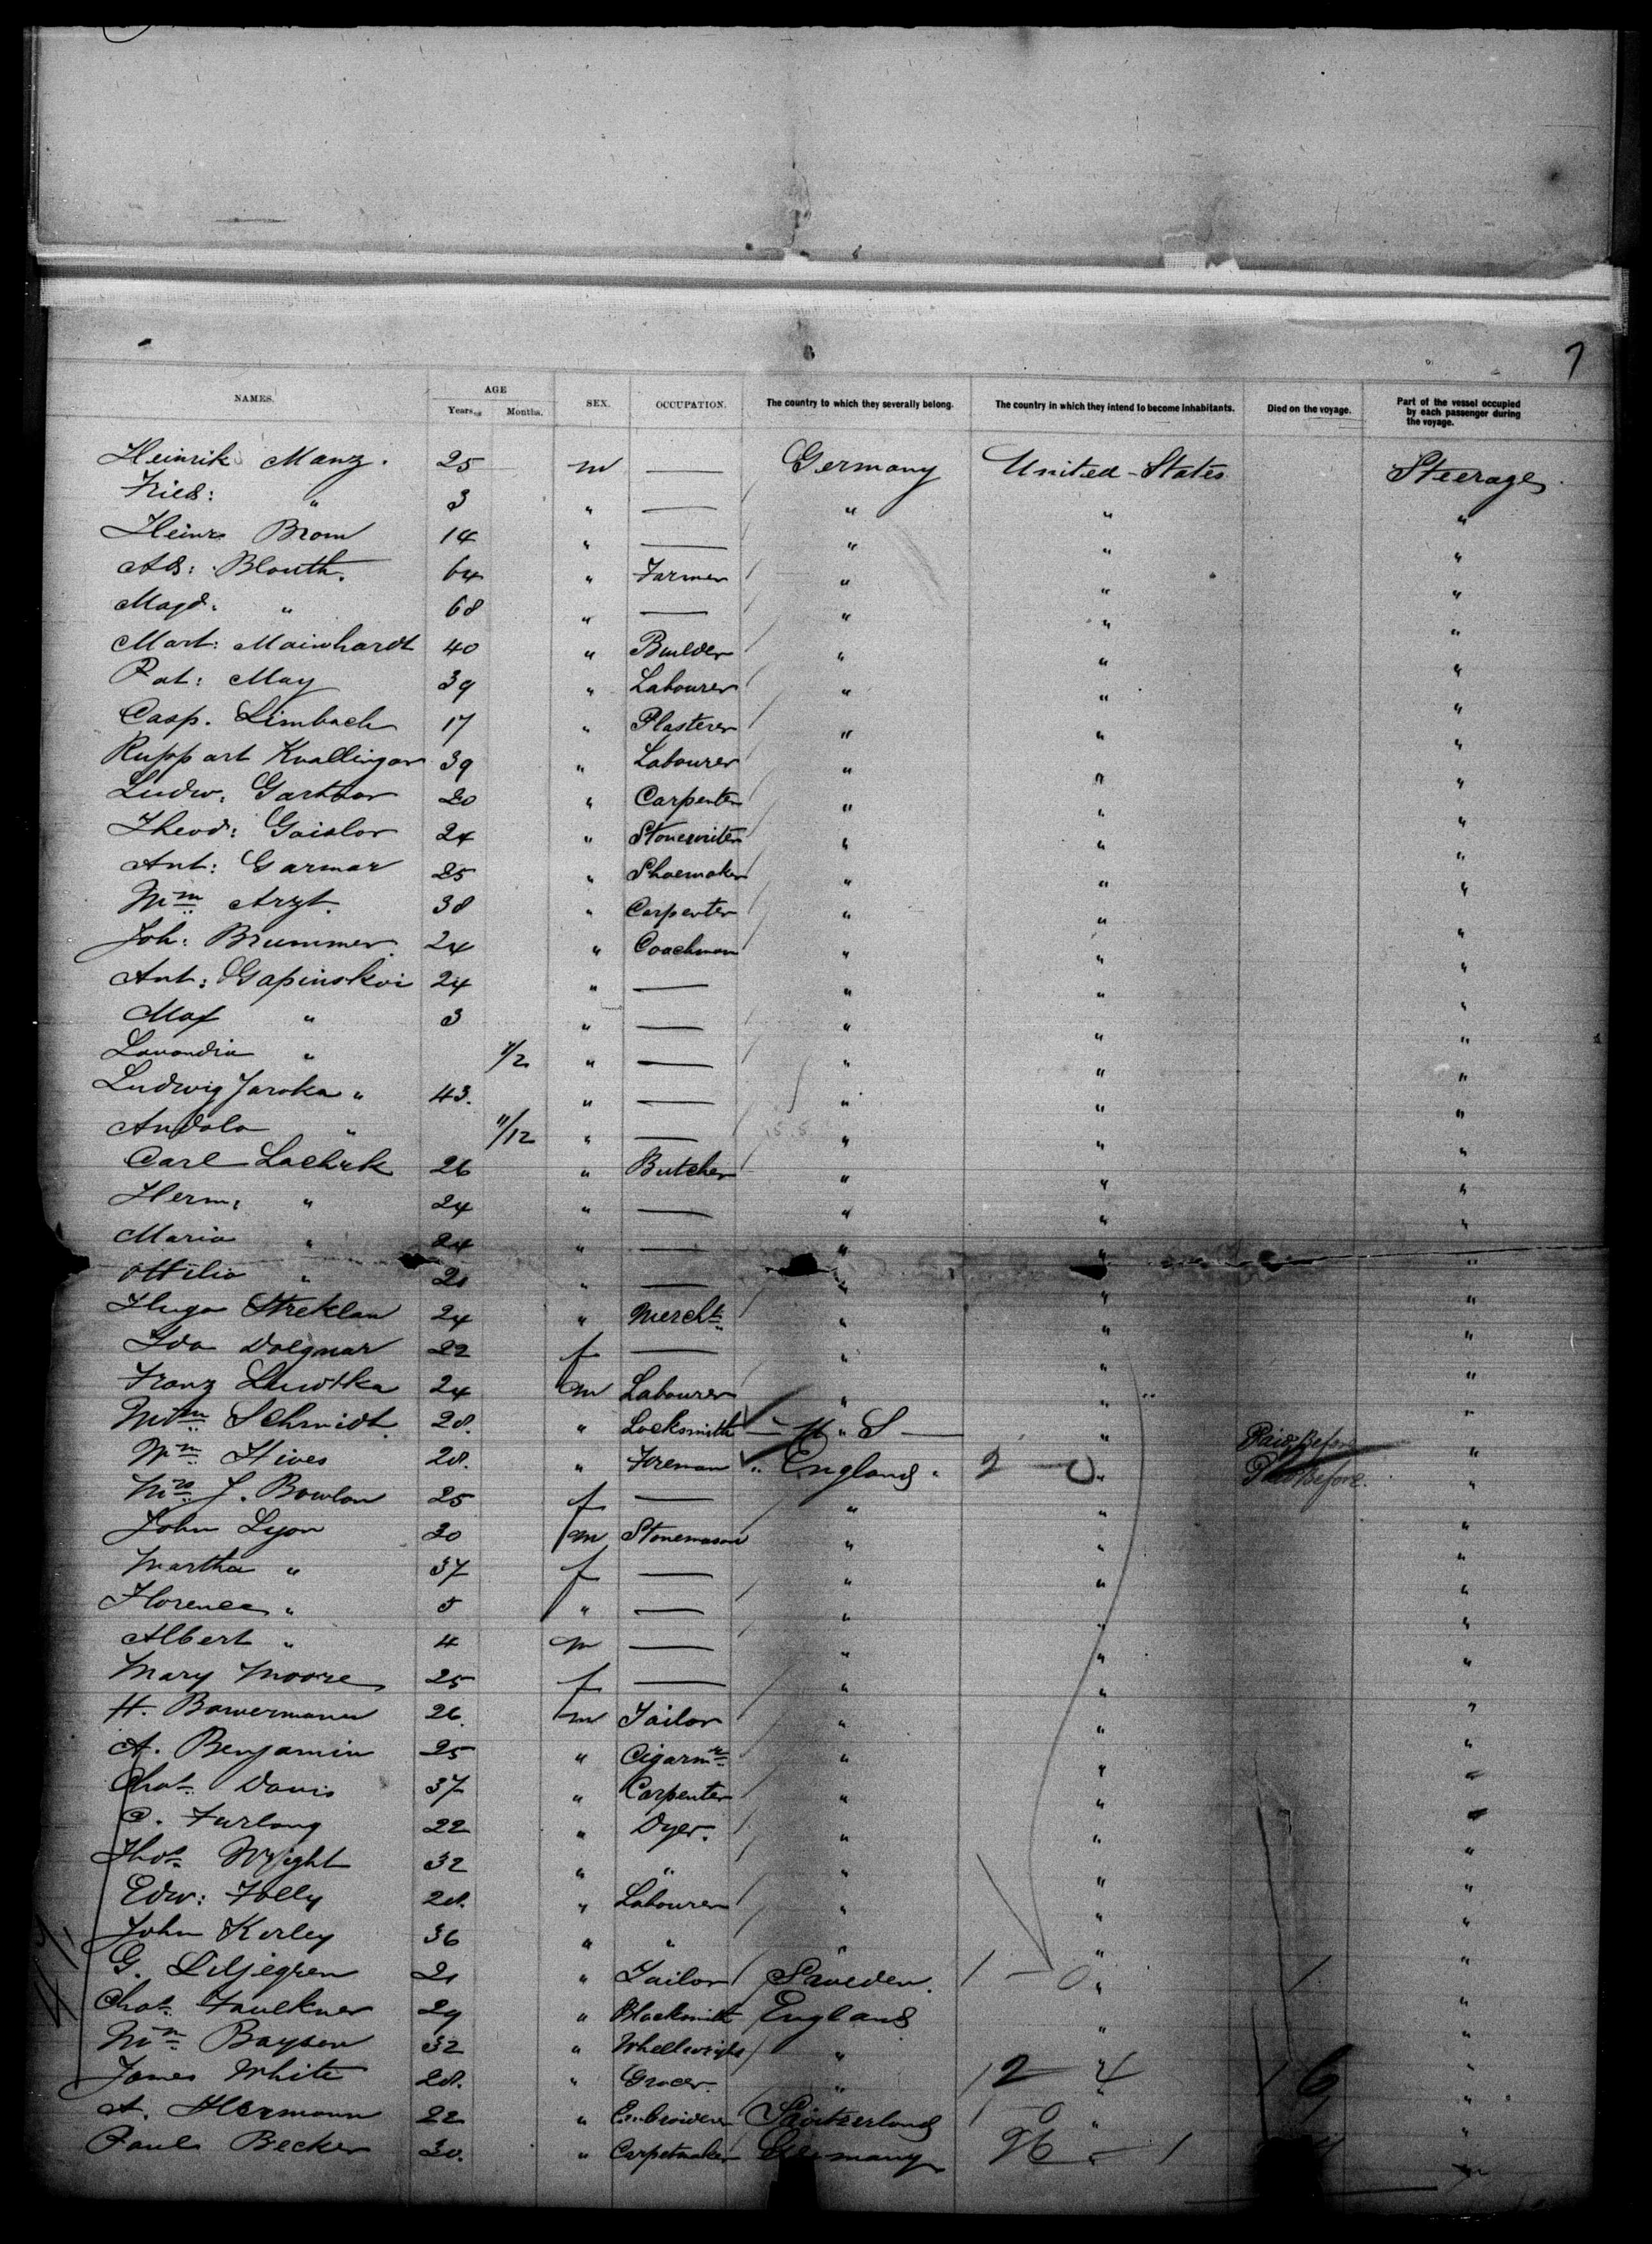 7
NAMES. AGE SEX. OCCUPATION. The country to which they severally belong. The country in which they intend to become inhabitants. Died on the voyage. Part of the vessel occupied by each passenger during the voyage.
Years. Months.
Heinrik Manz. 25 m — Germany United-States Steerage
Fried: " 3 " — " " "
Heinr Brom 14 " — " " "
Ad: Blouth. 64 " Farmer " " "
Magd. " 68 " — " " "
Mart: Mainhardt 40 " Builder " " "
Pat: May 39 " Labourer " " "
Casp. Limbach 17 " Plasterer " " "
Ruppart Knallingar 39 " Labourer " " "
Ludw: 20 " Carpenter " " "
Theod: Gaislar 24 " " " "
Ant: Garmar 25 " Shoemaker " " "
Wm Arzt. 38 " Carpenter " " "
Joh: Brummer 24 " Coachman " " "
Ant: Gapinskoi 24 " — " " "
Max " 3 " — " " "
" 1/2 " — " " "
Ludwig Jaroka " 43. " — " " "
" 11/12 " — " " "
Carl 26 " Butcher " " "
Herm: " 24 " — " " "
Maria " 24 " — " " "
Ottilia " 21 " — " " "
Hugo Streklau 24 " Mercht. " " "
Ida 22 f — " " "
Franz 24 m Labourer " " "
Wm Schmidt 28. " Locksmith — U " S — " Paid Before "
Wm Hives 28. " Fireman " England " 2 – 0 " Paid Before. "
Mrs J. Bowlan 25 f — " " "
John Lyon 30 m Stonemason " " "
Martha " 37 f — " " "
Florence " 5 " — " " "
Albert " 4 m — " " "
Mary Moore 25 f — " " "
H. Bowermann 26. m Tailor " " "
A. Benjamin 25 " Cigarmr " " "
Chas. Davis 37 " Carpenter " " "
C. Furlong 22 " Dyer. " " "
Thos. Wright 32 " " " " "
Edw: Folly 28. " Labourer " " "
John Kerley 36 " " " " "
G. Liljegren 21 " Tailor Sweden. 1 – 0 " 1 "
Chas. Faulkner 29 " Blacksmith England " "
Wm Boysen 32 " Wheelwright " " "
James White 28. " Grocer. " 12 – 4 " 1 6 "
A. Hermann 22 " Embroiderer Switzerland 1 – 0 " "
Paul Becker 30. " Carpetmaker Germany 96 – 1 "